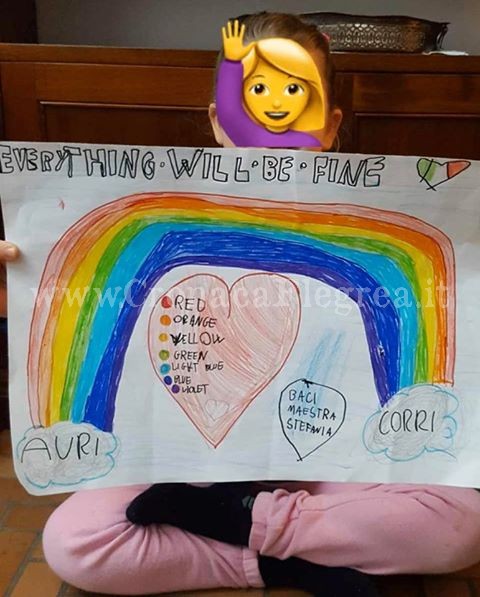 EVERYTHING·WILL·BE·FINE
www.CronacaFlegrea.it
RED
ORANGE
YELLOW
GREEN
LIGHT BLUE
BLUE
VIOLET
BACI
MAESTRA
STEFANIA
AURI
CORRI